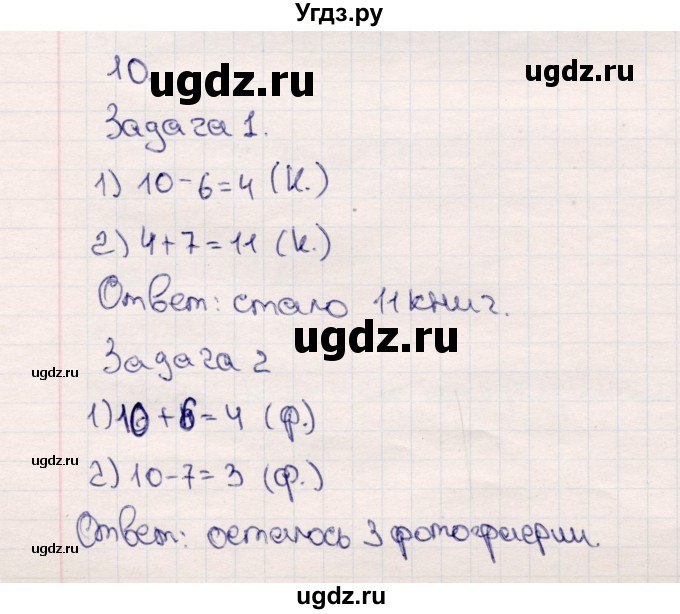 Угдз.ру
10.
ugdz.ru
ugdz.ru
Задача 1.
1) 10-6=4 (к.)
2) 4+7=11 (к.)
Ответ: стало 11 книг.
ugdz.ru
Задача 2
ugdz.ru
1) 10+6=4 (ф.)
ugdz.ru
2) 10-7=3 (ф.)
Ответ: осталось 3 фотографии.
ugdz.ru
ugdz.ru